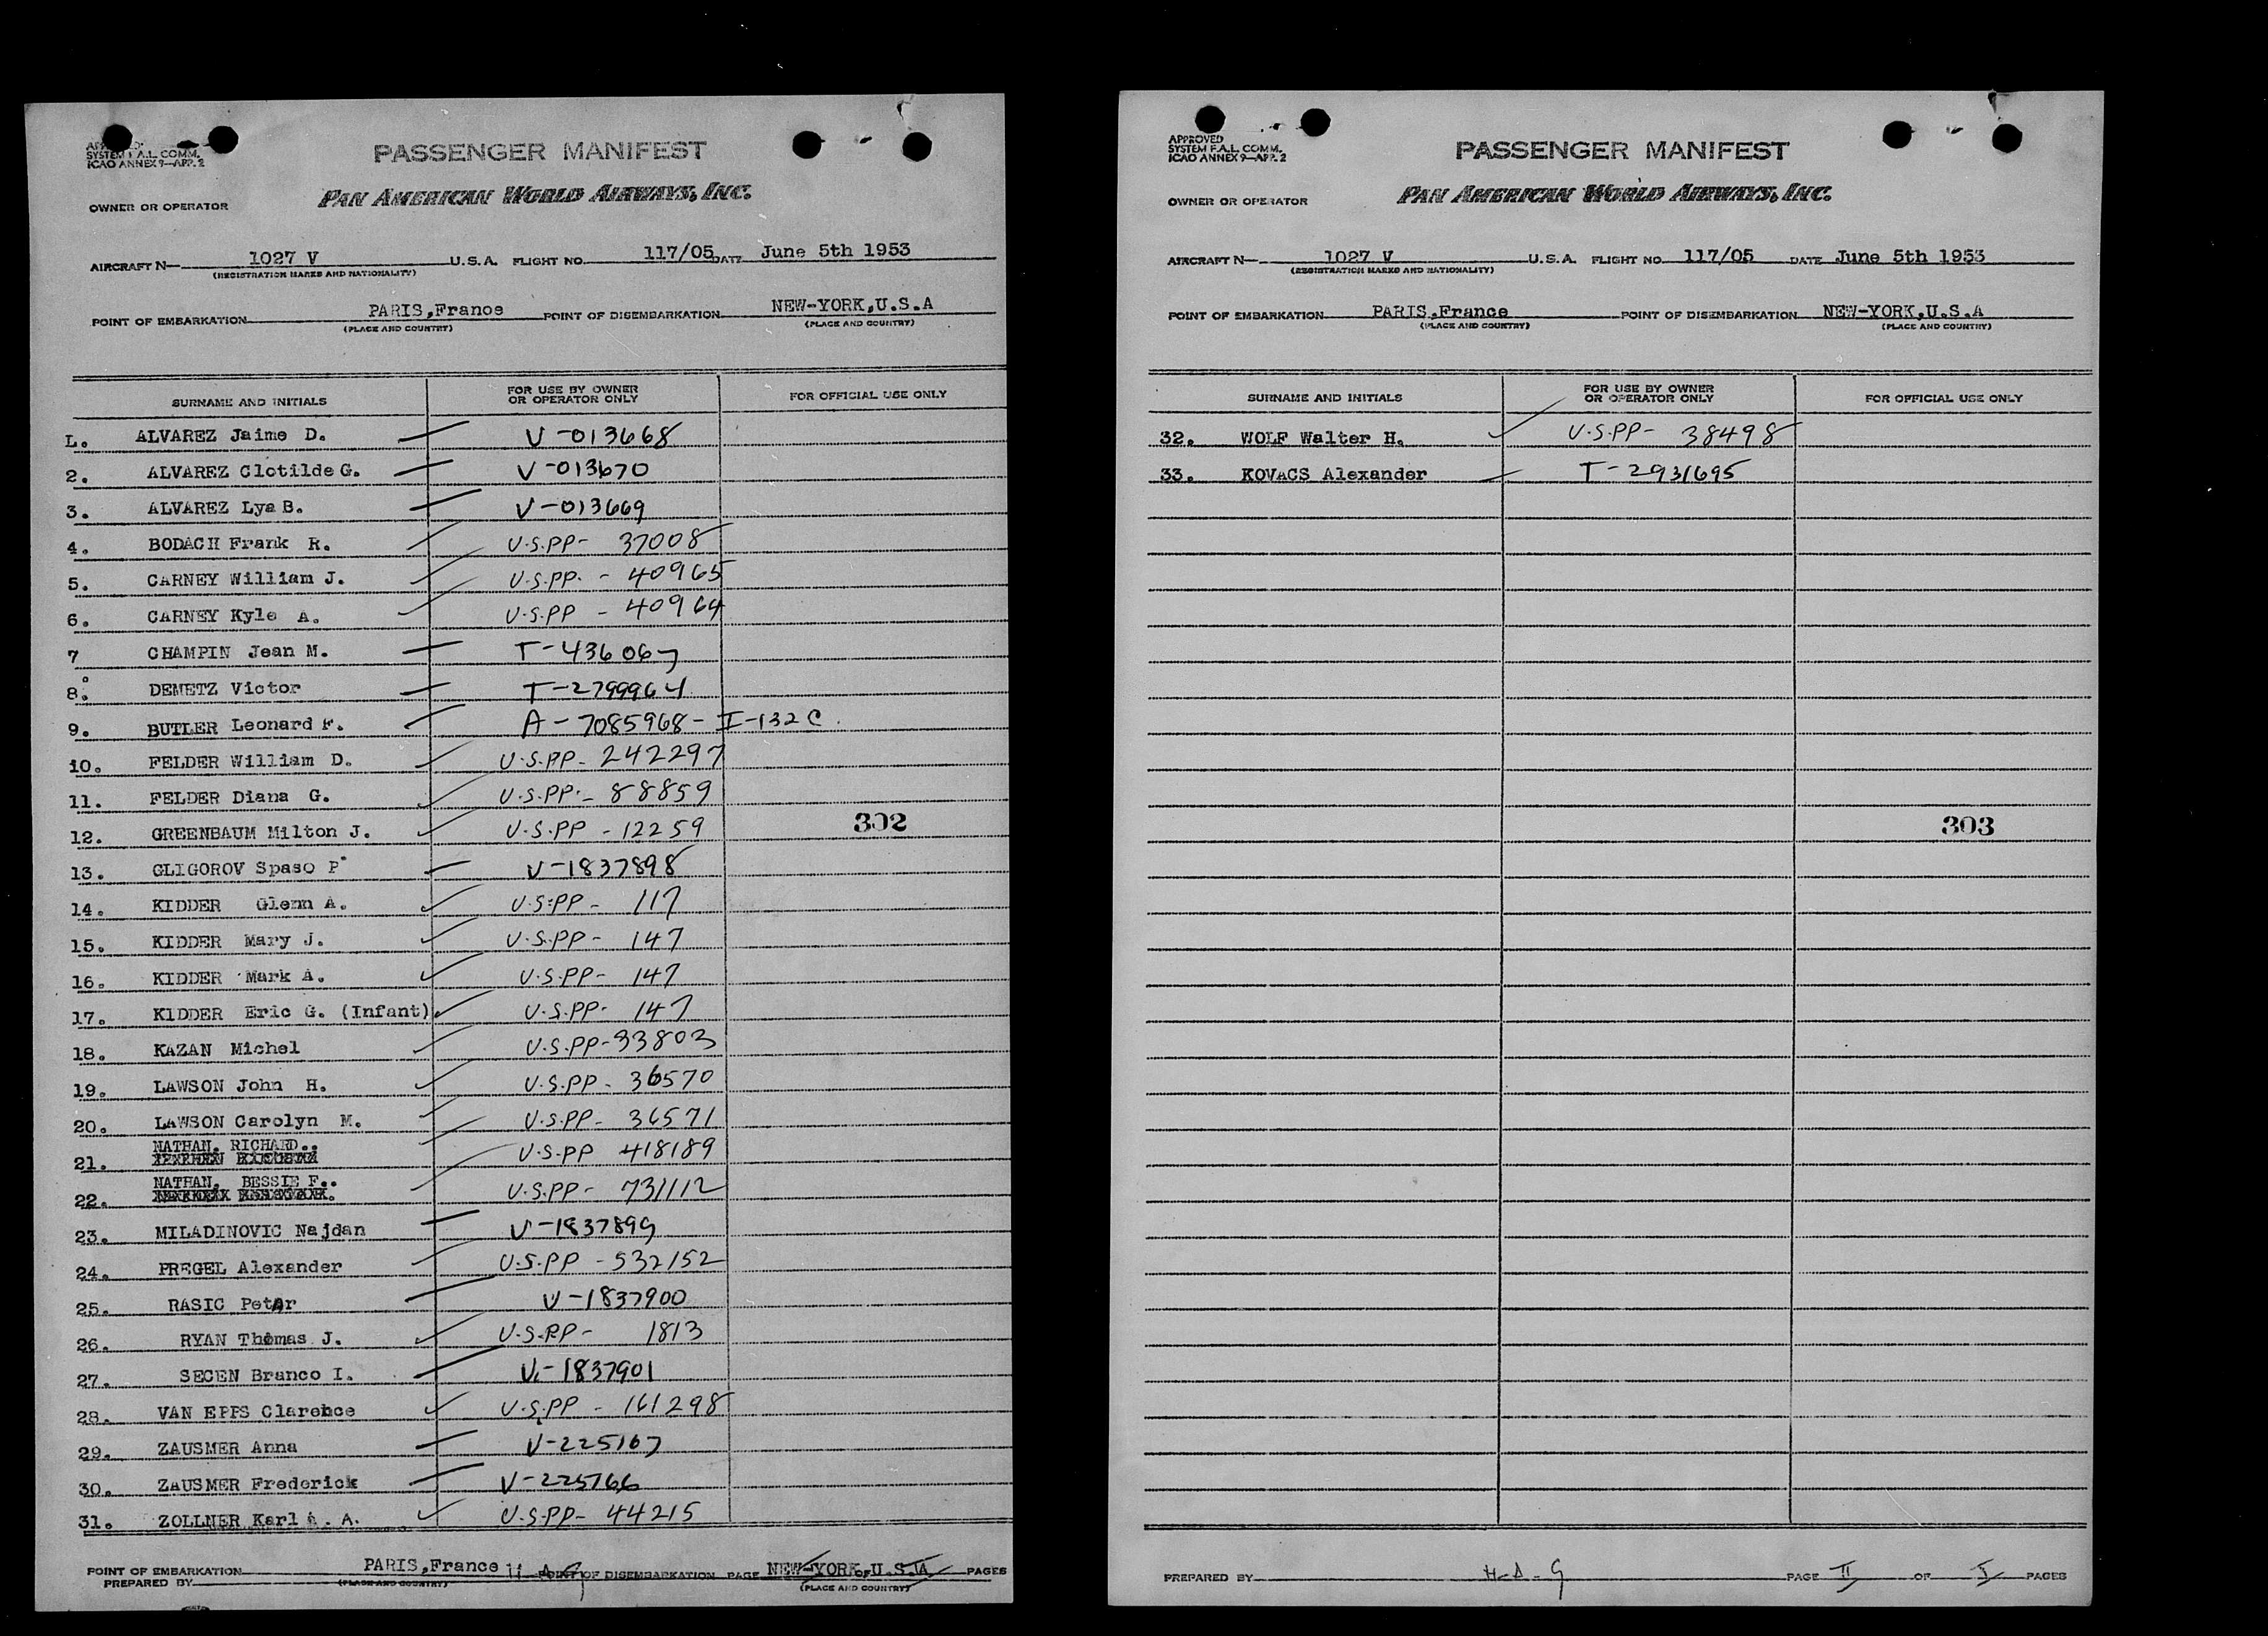 APPROVED
SYSTEM F.A.L. COMM.
ICAO ANNEX 9—APP. 2
PASSENGER MANIFEST
PAN AMERICAN WORLD AIRWAYS, INC.
OWNER OR OPERATOR
AIRCRAFT N— 1027 V U.S.A. FLIGHT NO. 117/05 DATE June 5th 1953
(REGISTRATION MARKS AND NATIONALITY)
POINT OF EMBARKATION PARIS,France POINT OF DISEMBARKATION NEW-YORK,U.S.A
(PLACE AND COUNTRY) (PLACE AND COUNTRY)
SURNAME AND INITIALS FOR USE BY OWNER OR OPERATOR ONLY FOR OFFICIAL USE ONLY
L. ALVAREZ Jaime D. V-013668
2. ALVAREZ Clotilde G. V-013670
3. ALVAREZ Lya B. V-013669
4. BODACH Frank R. U.S.PP- 37008
5. CARNEY William J. U.S.PP. - 40965
6. CARNEY Kyle A. U.S.PP - 40964
7 CHAMPIN Jean M. T-436067
8. DEMETZ Victor T-2799964
9. BUTLER Leonard F. A-7085968-I-132C.
10. FELDER William D. U.S.PP- 242297
11. FELDER Diana G. U.S.PP.- 88859
12. GREENBAUM Milton J. U.S.PP -12259 302
13. GLIGOROV Spaso P. V-1837898
14. KIDDER Glenn A. U.S.PP- 117
15. KIDDER Mary J. U.S.PP- 147
16. KIDDER Mark A. U.S.PP- 147
17. KIDDER Eric G. (Infant) U.S.PP- 147
18. KAZAN Michel U.S.PP-33803
19. LAWSON John H. U.S.PP- 36570
20. LAWSON Carolyn M. U.S.PP- 36571
21. NATHAN, RICHARD.. U.S.PP 418189
22. NATHAN, BESSIE F.. U.S.PP- 731112
23. MILADINOVIC Najdan V-1837899
24. PREGEL Alexander U.S.PP -532152
25. RASIC Petar V-1837900
26. RYAN Thomas J. U.S.PP- 1813
27. SECEN Branco I. V-1837901
28. VAN EPPS Clarence U.S.PP - 161298
29. ZAUSMER Anna V-225167
30. ZAUSMER Frederick V-225766
31. ZOLLNER Karl A. A. U.S.PP- 44215
POINT OF EMBARKATION PARIS,France POINT OF DISEMBARKATION PAGE NEW-YORK,U.S.A. PAGES
PREPARED BY (PLACE AND COUNTRY) (PLACE AND COUNTRY)
APPROVED
SYSTEM F.A.L. COMM.
ICAO ANNEX 9—APP. 2
PASSENGER MANIFEST
PAN AMERICAN WORLD AIRWAYS, INC.
OWNER OR OPERATOR
AIRCRAFT N— 1027 V U.S.A. FLIGHT NO. 117/05 DATE June 5th 1953
(REGISTRATION MARKS AND NATIONALITY)
POINT OF EMBARKATION PARIS,France POINT OF DISEMBARKATION NEW-YORK,U.S.A
(PLACE AND COUNTRY) (PLACE AND COUNTRY)
SURNAME AND INITIALS FOR USE BY OWNER OR OPERATOR ONLY FOR OFFICIAL USE ONLY
32. WOLF Walter H. U.S.PP- 38498
33. KOVACS Alexander T-2931695
303
PREPARED BY H.D.G PAGE II OF I PAGES